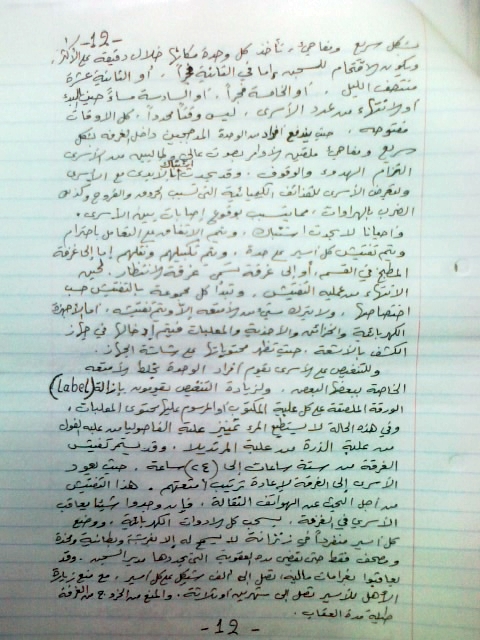 -12-
بشكل سريع ومفاجئ، تأخذ كل وحدة مكانها خلال دقيقة على الأكثر
ويكون الاقتحام للسجن إما في الثانية فجراً، أو الثانية عشرة
منتصف الليل. أو الخامسة فجراً، أو السادسة مساءً حين البدء
أو الانتهاء من عدد الأسرى، ليس وقتاً محدداً، كل الأوقات
مفتوحة. حيث يندفع أفراد من الوحدة المدججين داخل الغرفة بشكل
سريع ومفاجئ ملقين الأوامر بصوت عالي وطالبين من الأسرى
التزام الهدوء والوقوف. وقد يحدث اشتباك بالأيدي مع الأسرى
وتعرض الأسرى للقذائف الكيميائية التي تسبب الحروق والقروح وكذلك
الضرب بالهراوات، مما يتسبب بوقوع إصابات بين الأسرى.
وأحيانا لا يحدث اشتباك، ويتم الاتفاق مع التعامل باحترام
ويتم تفتيش كل أسير على حدة، ويتم تكبيلهم ونقلهم إما إلى غرفة
المطبخ في القسم، أو إلى غرفة تسمى غرفة الانتظار. لحين
الانتهاء من عملية التفتيش. وتبدأ كل مجموعة بالتفتيش حسب
اختصاصها. ولا يترك شيء من الأمتعة إلا ويتم تفتيشه، أما الأجهزة
الكهربائية والخزائن والأحذية والمعلبات فيتم إدخالها في جهاز
الكشف بالأشعة. حيث تظهر محتوياتها على شاشة الجهاز.
وللتنغيص على الأسرى يقوم أفراد الوحدة بخلط الأمتعة
الخاصة ببعضها البعض. ولزيادة التنغيص يقومون بإزالة (Label)
الورقة الملصقة على كل علبة المكتوب أو المرسوم عليها محتوى المعلبات،
وفي هذه الحالة لا يستطيع المرء تمييز علبة الفاصوليا من علبة الفول
من علبة الذرة من علبة المرتديلا. وقد يستمر تفتيش
الغرفة من ستة ساعات إلى (٢٤) ساعة. حيث يعود
الأسرى إلى الغرفة لإعادة ترتيب أمتعتهم. هذا التفتيش
من أجل البحث عن الهواتف النقالة، فإن وجدوا شيئا يعاقب
الأسرى في الغرفة. بسحب كل الأدوات الكهربائية، ووضع
كل أسير منفرداً في زنزانة لا يسمح له إلا بفرشة وبطانية ومخدة
ومصحف فقط حتى تقضي مدة العقوبة التي يحددها مدير السجن. وقد
يعاقبوا بغرامات مالية، تصل إلى ألف شيكل على كل أسير، مع منع زيارة
الأهل للأسير تصل إلى شهرين أو ثلاثة. والمنع من الخروج من الغرفة
طيلة مدة العقاب.
-12-